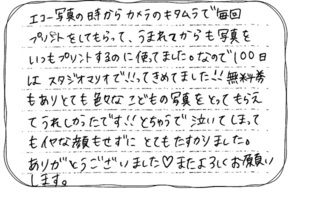 エコー写真の時からカメラのキタムラで毎回
プリントをしてもらって、うまれてからも写真を
いつもプリントするのに使ってました。なので100日
はスタジオマリオで!!ってきめてました!!無料券
もありとても色々なこどもの写真をとってもらえ
てうれしかったです!!とちゅうで泣いてしまって
もイヤな顔もせずにとてもたすかりました。
ありがとうございました♡またよろしくお願い
します。